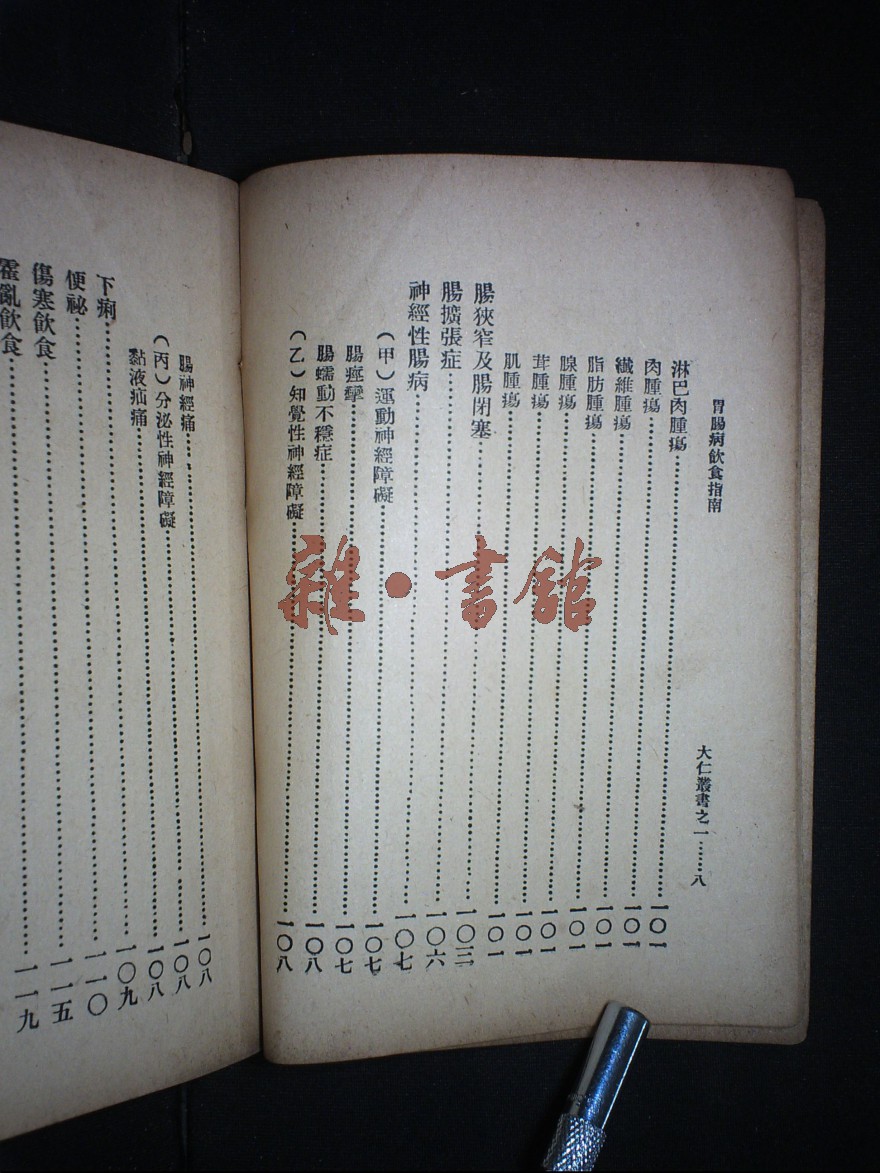 胃腸病飲食指南 大仁叢書之一……八
淋巴肉腫瘍……一〇一
肉腫瘍……一〇一
纖維腫瘍……一〇一
脂肪腫瘍……一〇一
腺腫瘍……一〇一
茸腫瘍……一〇一
肌腫瘍……一〇一
腸狹窄及腸閉塞……一〇三
腸擴張症……一〇六
神經性腸病……一〇七
（甲）運動神經障礙……一〇七
腸痙攣……一〇七
腸蠕動不穩症……一〇八
（乙）知覺性神經障礙……一〇八
腸神經痛……一〇八
（丙）分泌性神經障礙……一〇八
黏液疝痛……一〇八
下痢……一〇九
便祕……一一〇
傷寒飲食……一一五
霍亂飲食……一一九
雜·書館